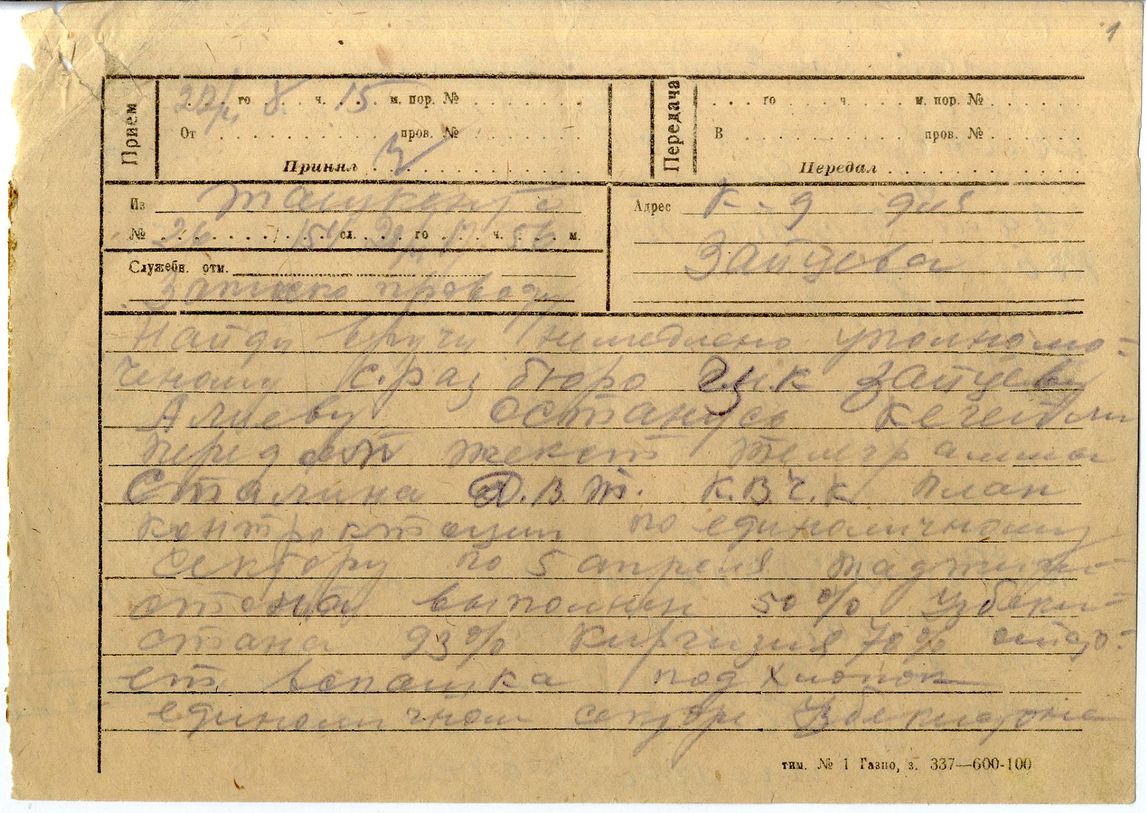 1
Прием
22/4 го 8 ч. 15 м. пор. №
От пров. №
Принял
Передача
го ч. м. пор. №
В пров. №
Передал
Из Ташкента
№ 26 154 сл. го ч. 56 м.
Служебн. отм.
Записка проводу
Адрес К-д для
Зайцова
Найди вручи немедлено уполномо-
ченому с.раз бюро Зайцеву
Алиеву останусь
текст телеграммы
Сталина план
контроктоции по единоличному
сектору по 5 апреля таджики
стона выполнен 50% узбеки-
стана 93% Киргизия 70%
ет вспашка под хлопок
единоличном секторе Узбекистона
тип. № 1 Газпо, з. 337—600-100